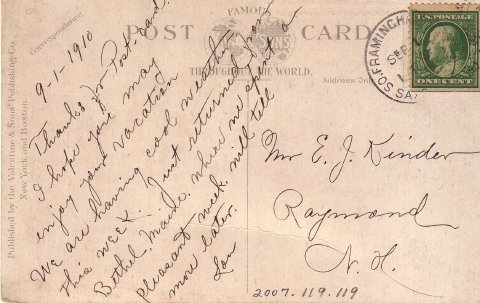 FAMOUS
POST CARD
THROUGHOUT THE WORLD.
Correspondence
Address Only
Published by the Valentine & Sons' Publishing Co.
New York and Boston.
SO. FRAMINGHAM
SEP
1
U.S. POSTAGE
ONE CENT
9-1-1910
Thanks for Post-card.
I hope you may
enjoy your vacation
We are having cool weather
this week. Just returned from
Bethel, Maine, where we spent a
pleasant week, will tell
more later.
Mr E. J. Kinder
Raymond
N. H.
2007.119.119